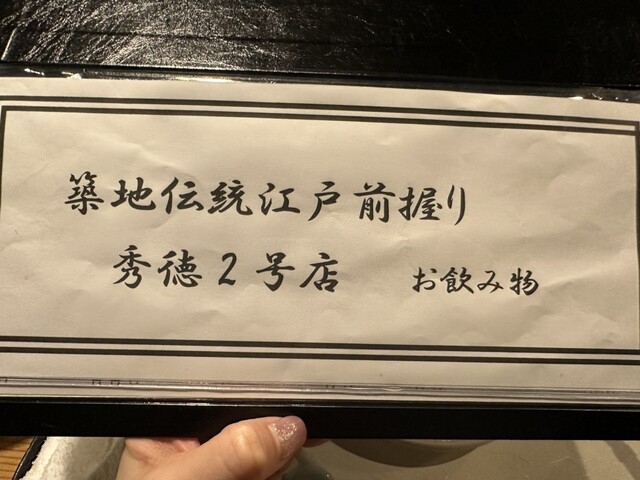 築地伝統江戸前握り
秀徳2号店 お飲み物